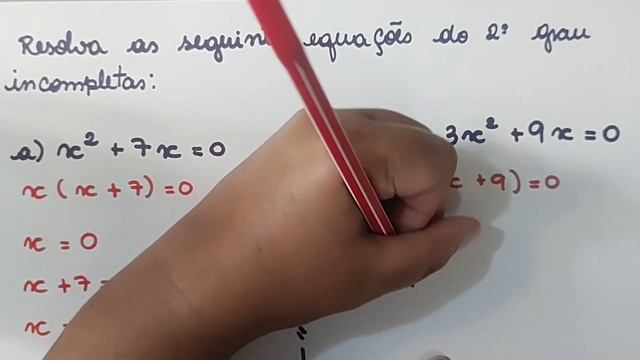 Resolva as equações do 2º grau
incompletas:
a) x² + 7x = 0
x ( x + 7 ) = 0
x = 0
x + 7
x
3x² + 9x = 0
+ 9 ) = 0